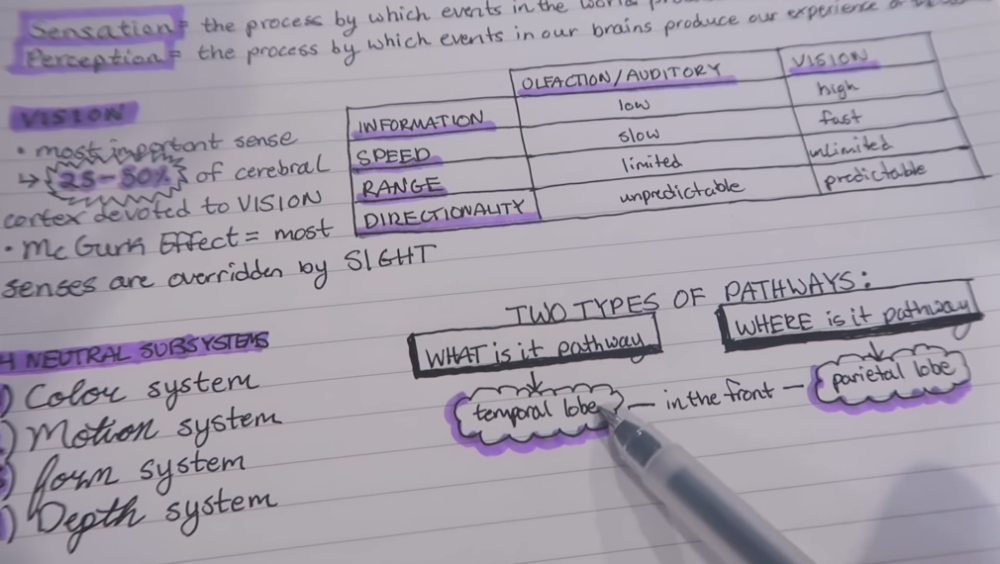 Sensation = the process by which events in the
Perception = the process by which events in our brains produce our experience
VISION
• most important sense
↳ 25-50% of cerebral
cortex devoted to VISION
• Mc Gurk Effect = most
senses are overridden by SIGHT
OLFACTION/AUDITORY VISION
INFORMATION low high
SPEED slow fast
RANGE limited unlimited
DIRECTIONALITY unpredictable predictable
4 NEUTRAL SUBSYSTEMS
) Color system
) Motion system
) form system
) Depth system
TWO TYPES OF PATHWAYS:
WHAT is it pathway WHERE is it pathway
temporal lobe — in the front — parietal lobe